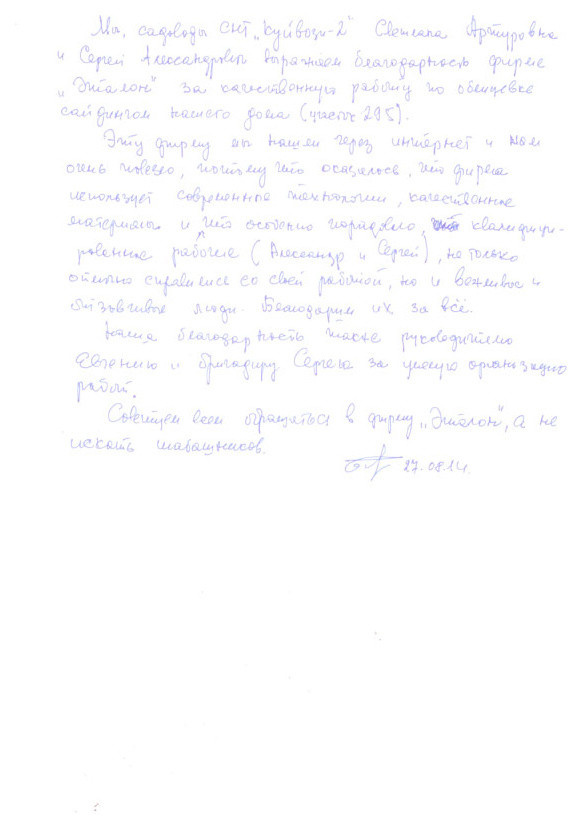 Мы, садоводы СНТ „Куйвози-2" Светлана Артуровна
и Сергей Александрович выражаем благодарность фирме
„Эталон" за качественную работу по обшивке
сайдингом нашего дома (участок 295).
Эту фирму мы нашли через интернет и нам
очень повезло, потому что оказалось, что фирма
использует современные технологии, качественные
материалы и что особенно порадовало, квалифици-
рованные рабочие (Александр и Сергей), не только
отлично справились со своей работой, но и вежливые и
отзывчивые люди. Благодарим их за всё.
Наша благодарность также руководителю
Евгению и бригадиру Сергею за умелую организацию
работ.
Советуем всем обращаться в фирму „Эталон", а не
искать шабашников.
27.08.14.